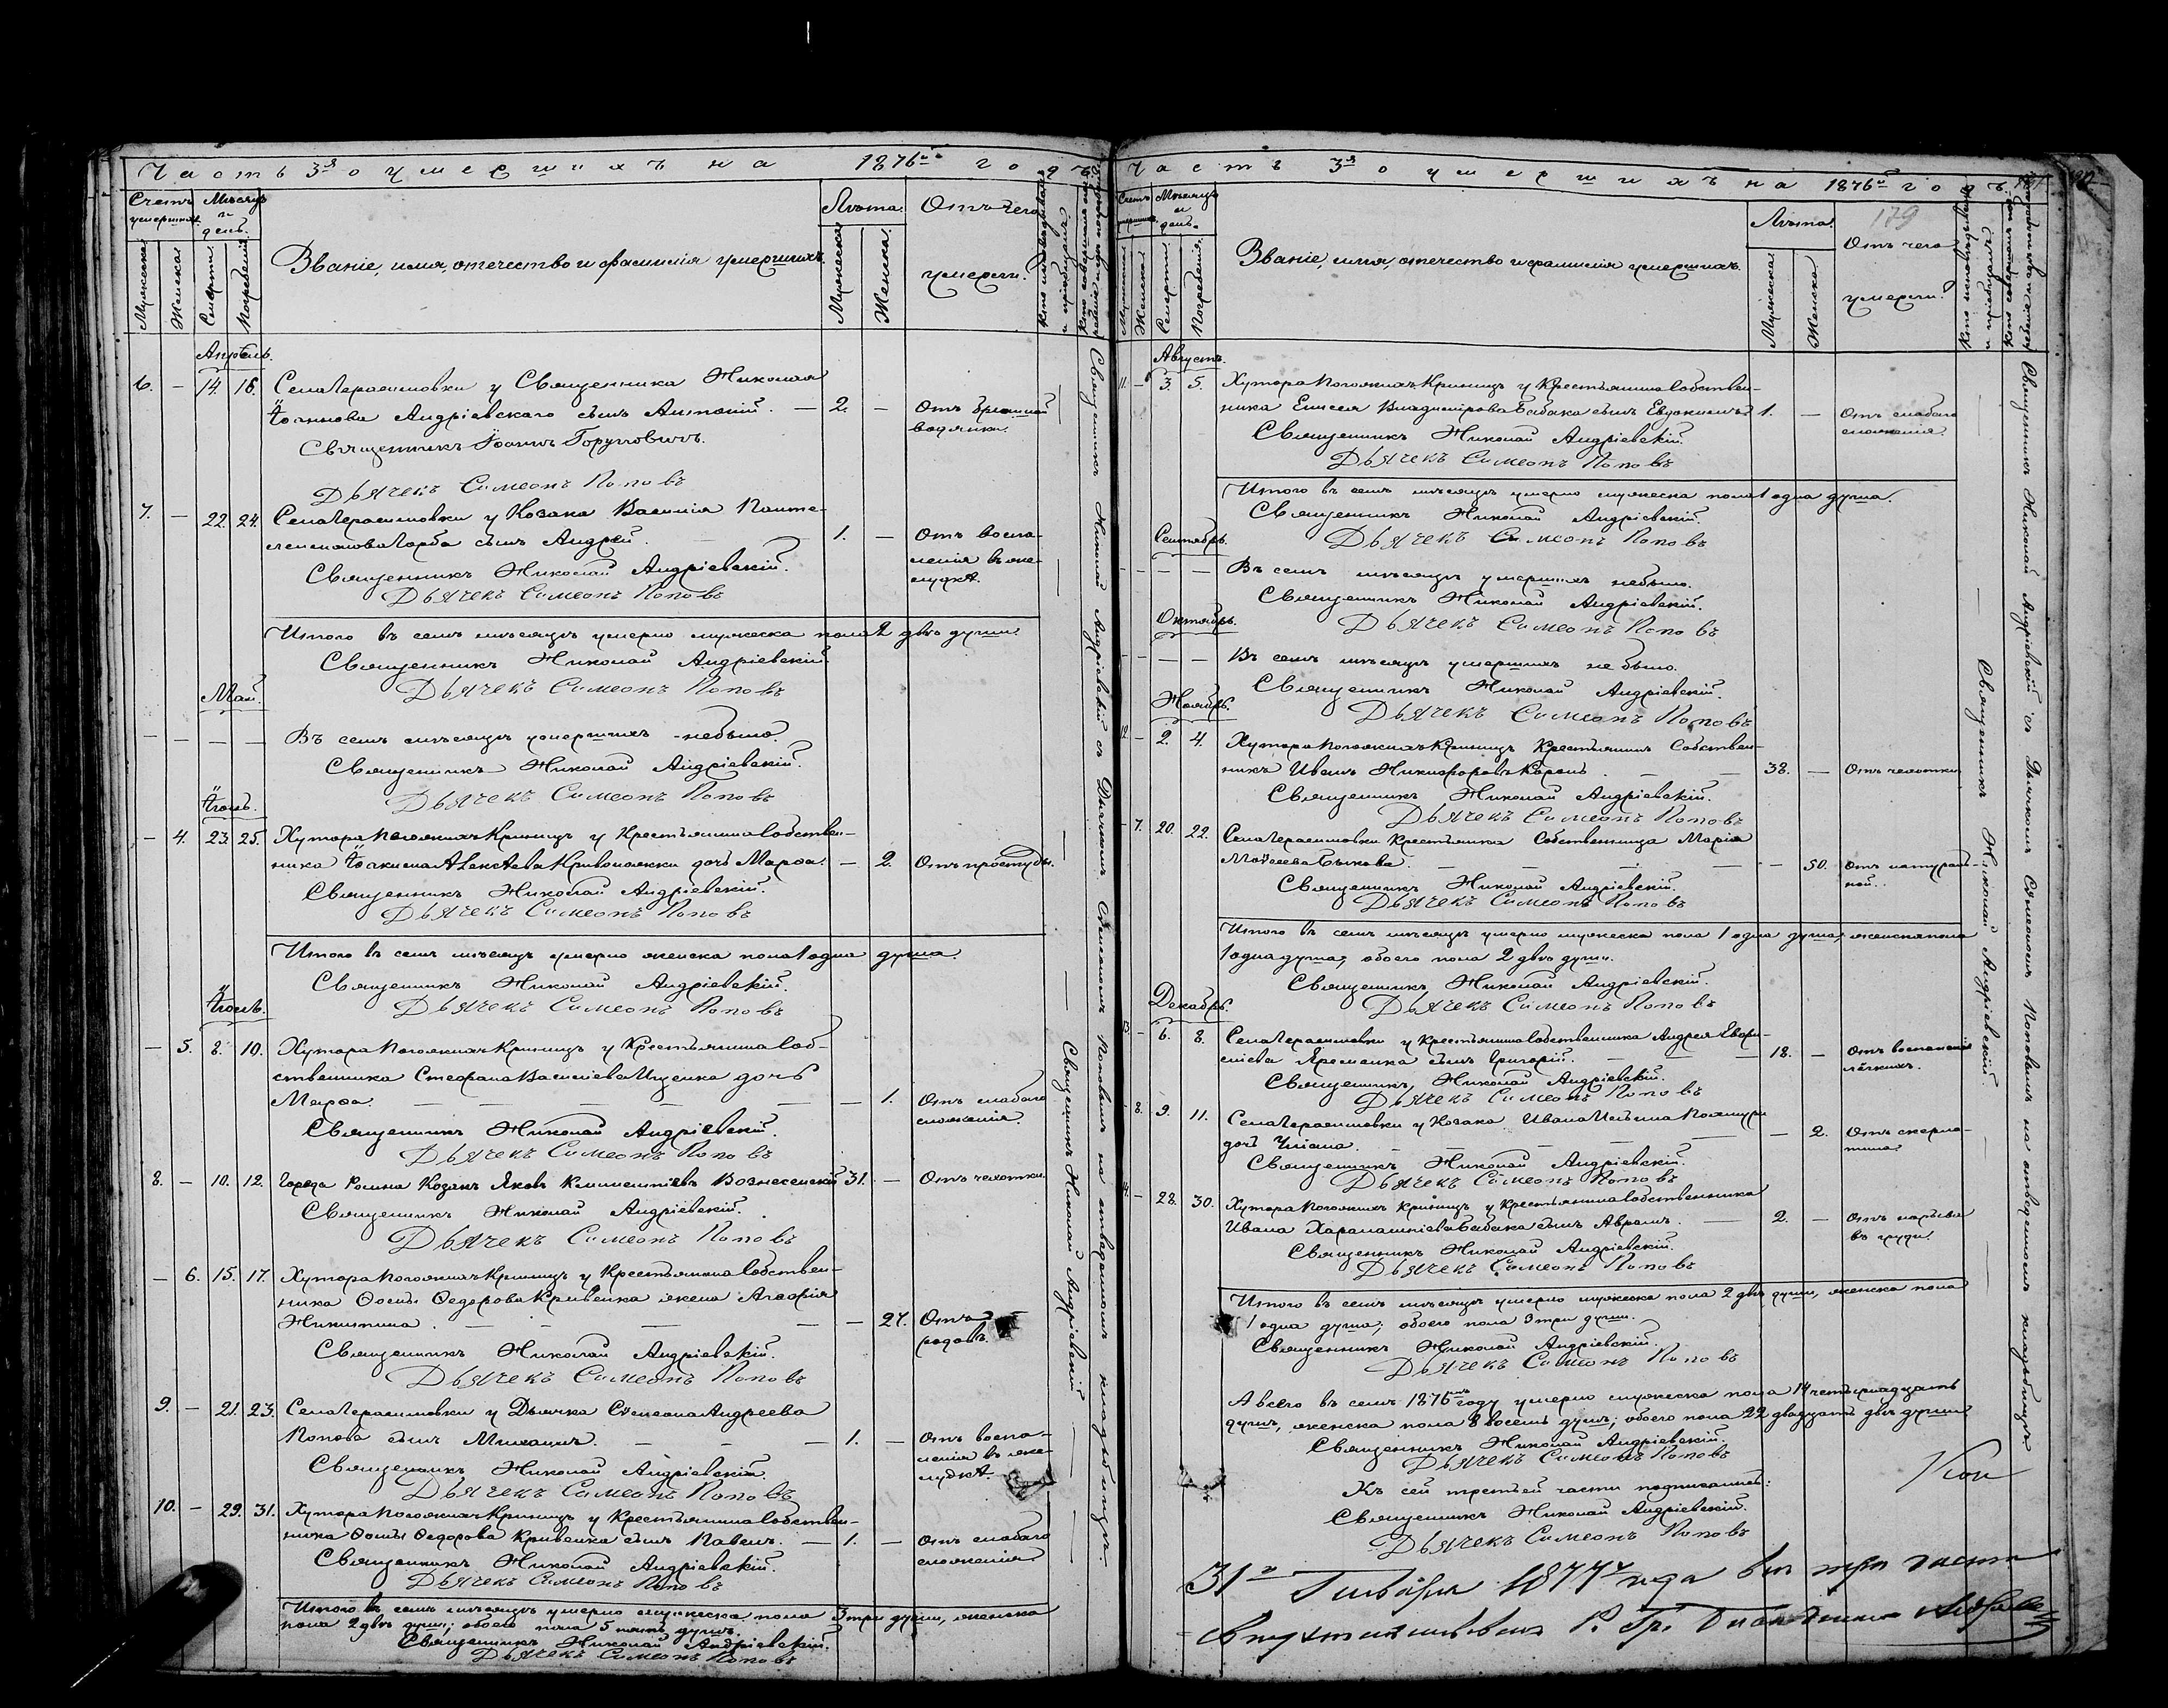 Часть 3я о умершихъ на 1876й годъ.
Счетъ умершихъ. Мѣсяцъ и день. Званіе, имя, отечество и фамилія умершихъ. Лѣта. Отъ чего умерли. Кто исповѣдывалъ и пріобщалъ.
Мужеска. Женска. Смерти. Погребенія. Мужеска. Женска.
Апрѣль.
6. – 14. 16. Села Герасимовки у Священника Николая
Іоаннова Андріевскаго сынъ Антоній. – 2. – Отъ брюшной
водянки.
Священникъ Іоаннъ
Дьячекъ Симеонъ Поповъ
7. – 22. 24. Села Герасимовки у Козака Василія Панте-
леимонова Горба сынъ Андрей. 1. – Отъ воспа-
ленія въ же-
лудкѣ.
Священникъ Николай Андріевскій.
Дьячекъ Симеонъ Поповъ
Итого въ семъ мѣсяцѣ умерло мужеска пола 2 двѣ души.
Священникъ Николай Андріевскій.
Дьячекъ Симеонъ Поповъ
Май.
– – – – Въ семъ мѣсяцѣ умершихъ небыло.
Священникъ Николай Андріевскій.
Дьячекъ Симеонъ Поповъ
Іюнь.
– 4. 23. 25. Хутора Погожихъ Криницъ у Крестьянина Собствен-
ника Іоакима Алексѣева Кривоножки дочь Марѳа. – 2. Отъ простуды.
Священникъ Николай Андріевскій.
Дьячекъ Симеонъ Поповъ
Итого въ семъ мѣсяцѣ умерло женска пола 1 одна душа.
Священникъ Николай Андріевскій.
Дьячекъ Симеонъ Поповъ
Іюль.
– 5. 8. 10. Хутора Погожихъ Криницъ у Крестьянина Соб-
ственника Стефана Василіева Ищенка дочь
Марѳа. – 1. Отъ слабаго
сложенія.
Священникъ Николай Андріевскій.
Дьячекъ Симеонъ Поповъ
8. – 10. 12. Города Ромна Козакъ Яковъ Климентіевъ Вознесенскій 31. – Отъ чахотки.
Священникъ Николай Андріевскій.
Дьячекъ Симеонъ Поповъ
– 6. 15. 17. Хутора Погожихъ Криницъ у Крестьянина Собствен-
ника Ѳомы Ѳедорова Кривенка жена Агафія
Никитина. – 27. Отъ
родовъ.
Священникъ Николай Андріевскій.
Дьячекъ Симеонъ Поповъ
9. – 21. 23. Села Герасимовки у Дьячка Симеона Андреева
Попова сынъ Михаилъ. – 1. – Отъ воспа-
ленія въ же-
лудкѣ.
Священникъ Николай Андріевскій.
Дьячекъ Симеонъ Поповъ
10. – 29. 31. Хутора Погожихъ Криницъ у Крестьянина Собствен-
ника Ѳомы Ѳедорова Кривенка сынъ Павелъ. – 1. – Отъ слабаго
сложенія.
Священникъ Николай Андріевскій.
Дьячекъ Симеонъ Поповъ
Итого въ семъ мѣсяцѣ умерло мужеска пола 3 три души, женска
пола 2 двѣ души; обоего пола 5 пять душъ.
Священникъ Николай Андріевскій.
Дьячекъ Симеонъ Поповъ
Священникъ Николай Андріевскій
Священникъ Николай Андріевскій съ Дьячкомъ Симеономъ Поповымъ на отведенномъ кладбищѣ.
Часть 3я о умершихъ на 1876й годъ.
179
Счетъ умершихъ. Мѣсяцъ и день. Званіе, имя, отечество и фамилія умершихъ. Лѣта. Отъ чего умерли. Кто исповѣдывалъ и пріобщалъ.
Мужеска. Женска. Смерти. Погребенія. Мужеска. Женска.
Августъ.
11. – 3. 5. Хутора Погожихъ Криницъ у Крестьянина Собствен-
ника Елисея Владимірова Бабака сынъ Евдокимъ. 1. – Отъ слабаго
сложенія.
Священникъ Николай Андріевскій.
Дьячекъ Симеонъ Поповъ
Итого въ семъ мѣсяцѣ умерло мужеска пола 1 одна душа.
Священникъ Николай Андріевскій.
Дьячекъ Симеонъ Поповъ
Сентябрь.
– – – – Въ семъ мѣсяцѣ умершихъ небыло.
Священникъ Николай Андріевскій.
Дьячекъ Симеонъ Поповъ
Октябрь.
– – – – Въ семъ мѣсяцѣ умершихъ не было.
Священникъ Николай Андріевскій.
Дьячекъ Симеонъ Поповъ
Ноябрь.
12. – 2. 4. Хутора Погожихъ Криницъ Крестьянинъ Собствен-
никъ Иванъ Никифоровъ Король. – 38. – Отъ чахотки
Священникъ Николай Андріевскій.
Дьячекъ Симеонъ Поповъ
– 7. 20. 22. Села Герасимовки Крестьянка Собственница Марія
Моѵсеева Быкова. – 50. Отъ натураль-
ной.
Священникъ Николай Андріевскій.
Дьячекъ Симеонъ Поповъ
Итого въ семъ мѣсяцѣ умерло мужеска пола 1 одна душа, женска пола
1 одна душа; обоего пола 2 двѣ души.
Священникъ Николай Андріевскій.
Дьячекъ Симеонъ Поповъ
Декабрь.
13. – 6. 8. Села Герасимовки у Крестьянина Собственника Андрея
Яременка сынъ Григорій. – 18. – Отъ воспаленія
лёгкихъ.
Священникъ Николай Андріевскій.
Дьячекъ Симеонъ Поповъ
– 8. 9. 11. Села Герасимовки у Козака Ивана Ильина
дочь Уліана. – 2. Отъ скарла-
тины.
Священникъ Николай Андріевскій.
Дьячекъ Симеонъ Поповъ
14. – 28. 30. Хутора Погожихъ Криницъ у Крестьянина Собственника
Ивана Харалампіева Бабака сынъ Аврамъ. – 2. – Отъ нарыва
въ груди.
Священникъ Николай Андріевскій.
Дьячекъ Симеонъ Поповъ
Итого въ семъ мѣсяцѣ умерло мужеска пола 2 двѣ души, женска пола
1 одна душа; обоего пола 3 три души.
Священникъ Николай Андріевскій.
Дьячекъ Симеонъ Поповъ
А всего въ семъ 1876мъ году умерло мужеска пола 14 четырнадцать
душъ, женска пола 8 восемь душъ; обоего пола 22 двадцать двѣ души.
Священникъ Николай Андріевскій.
Дьячекъ Симеонъ Поповъ
Къ сей третьей части подписались:
Священникъ Николай Андріевскій.
Дьячекъ Симеонъ Поповъ
Священникъ Николай Андріевскій.
Священникъ Николай Андріевскій съ Дьячкомъ Симеономъ Поповымъ на отведенномъ кладбищѣ
31го Января 1877 года три части